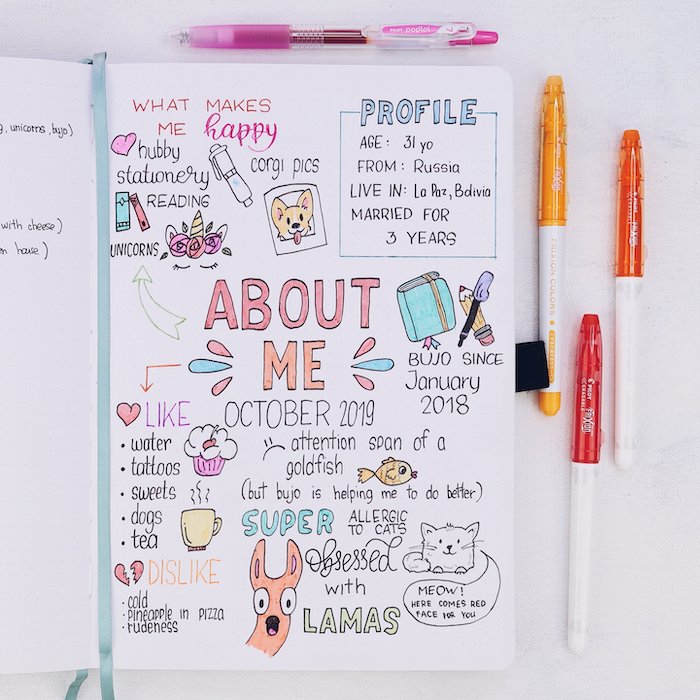 g, unicorns, bujo)
with cheese)
house)
WHAT MAKES
ME happy
hubby
stationery
READING
UNICORNS
corgi pics
PROFILE
AGE: 31 yo
FROM: Russia
LIVE IN: La Paz, Bolivia
MARRIED FOR
3 YEARS
ABOUT
ME
BUJO SINCE
January
2018
LIKE
• water
• tattoos
• sweets
• dogs
• tea
DISLIKE
• cold
• pineapple in pizza
• rudeness
OCTOBER 2019
attention span of a
goldfish
(but bujo is helping me to do better)
SUPER ALLERGIC
TO CATS
obsessed
with
LAMAS
MEOW!
HERE COMES RED
FACE FOR YOU
PILOT poplol
FRIXION COLORS
PILOT
FRIXION